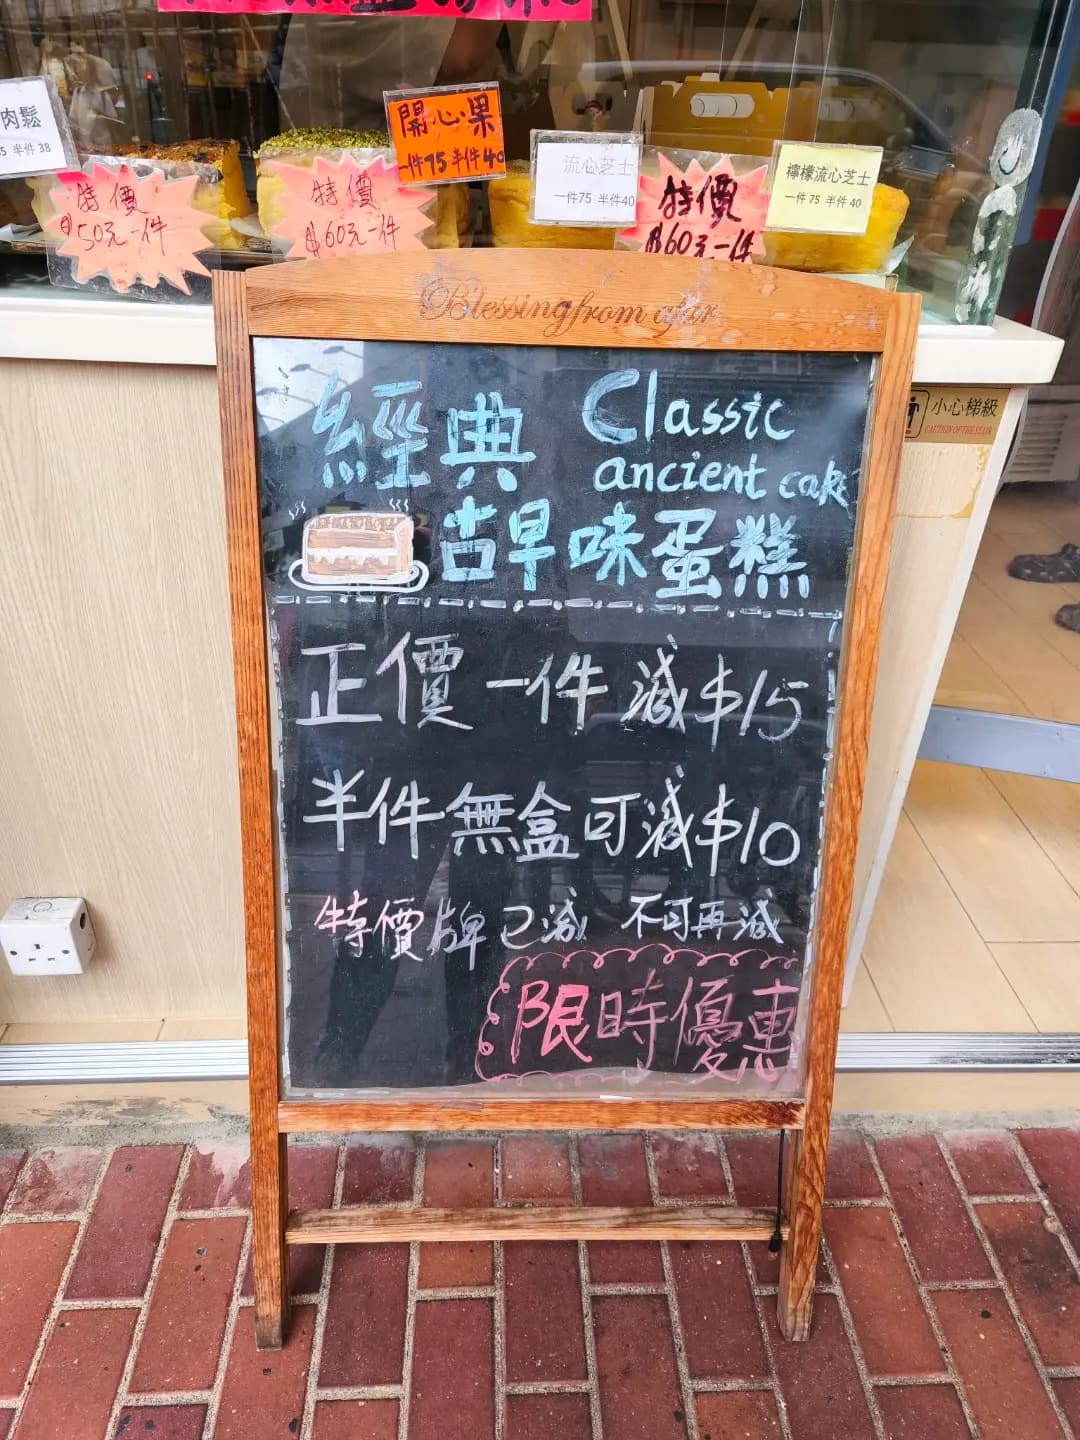 肉鬆
半件 38
特價
$50元一件
特價
$60元一件
開心果
一件75 半件40
流心芝士
一件75 半件40
特價
$60元一件
檸檬流心芝士
一件75 半件40
小心梯級
Blessing from afar
經典 Classic
ancient cake
古早味蛋糕
正價一件減$15
半件無盒可減$10
特價牌已減 不可再減
限時優惠